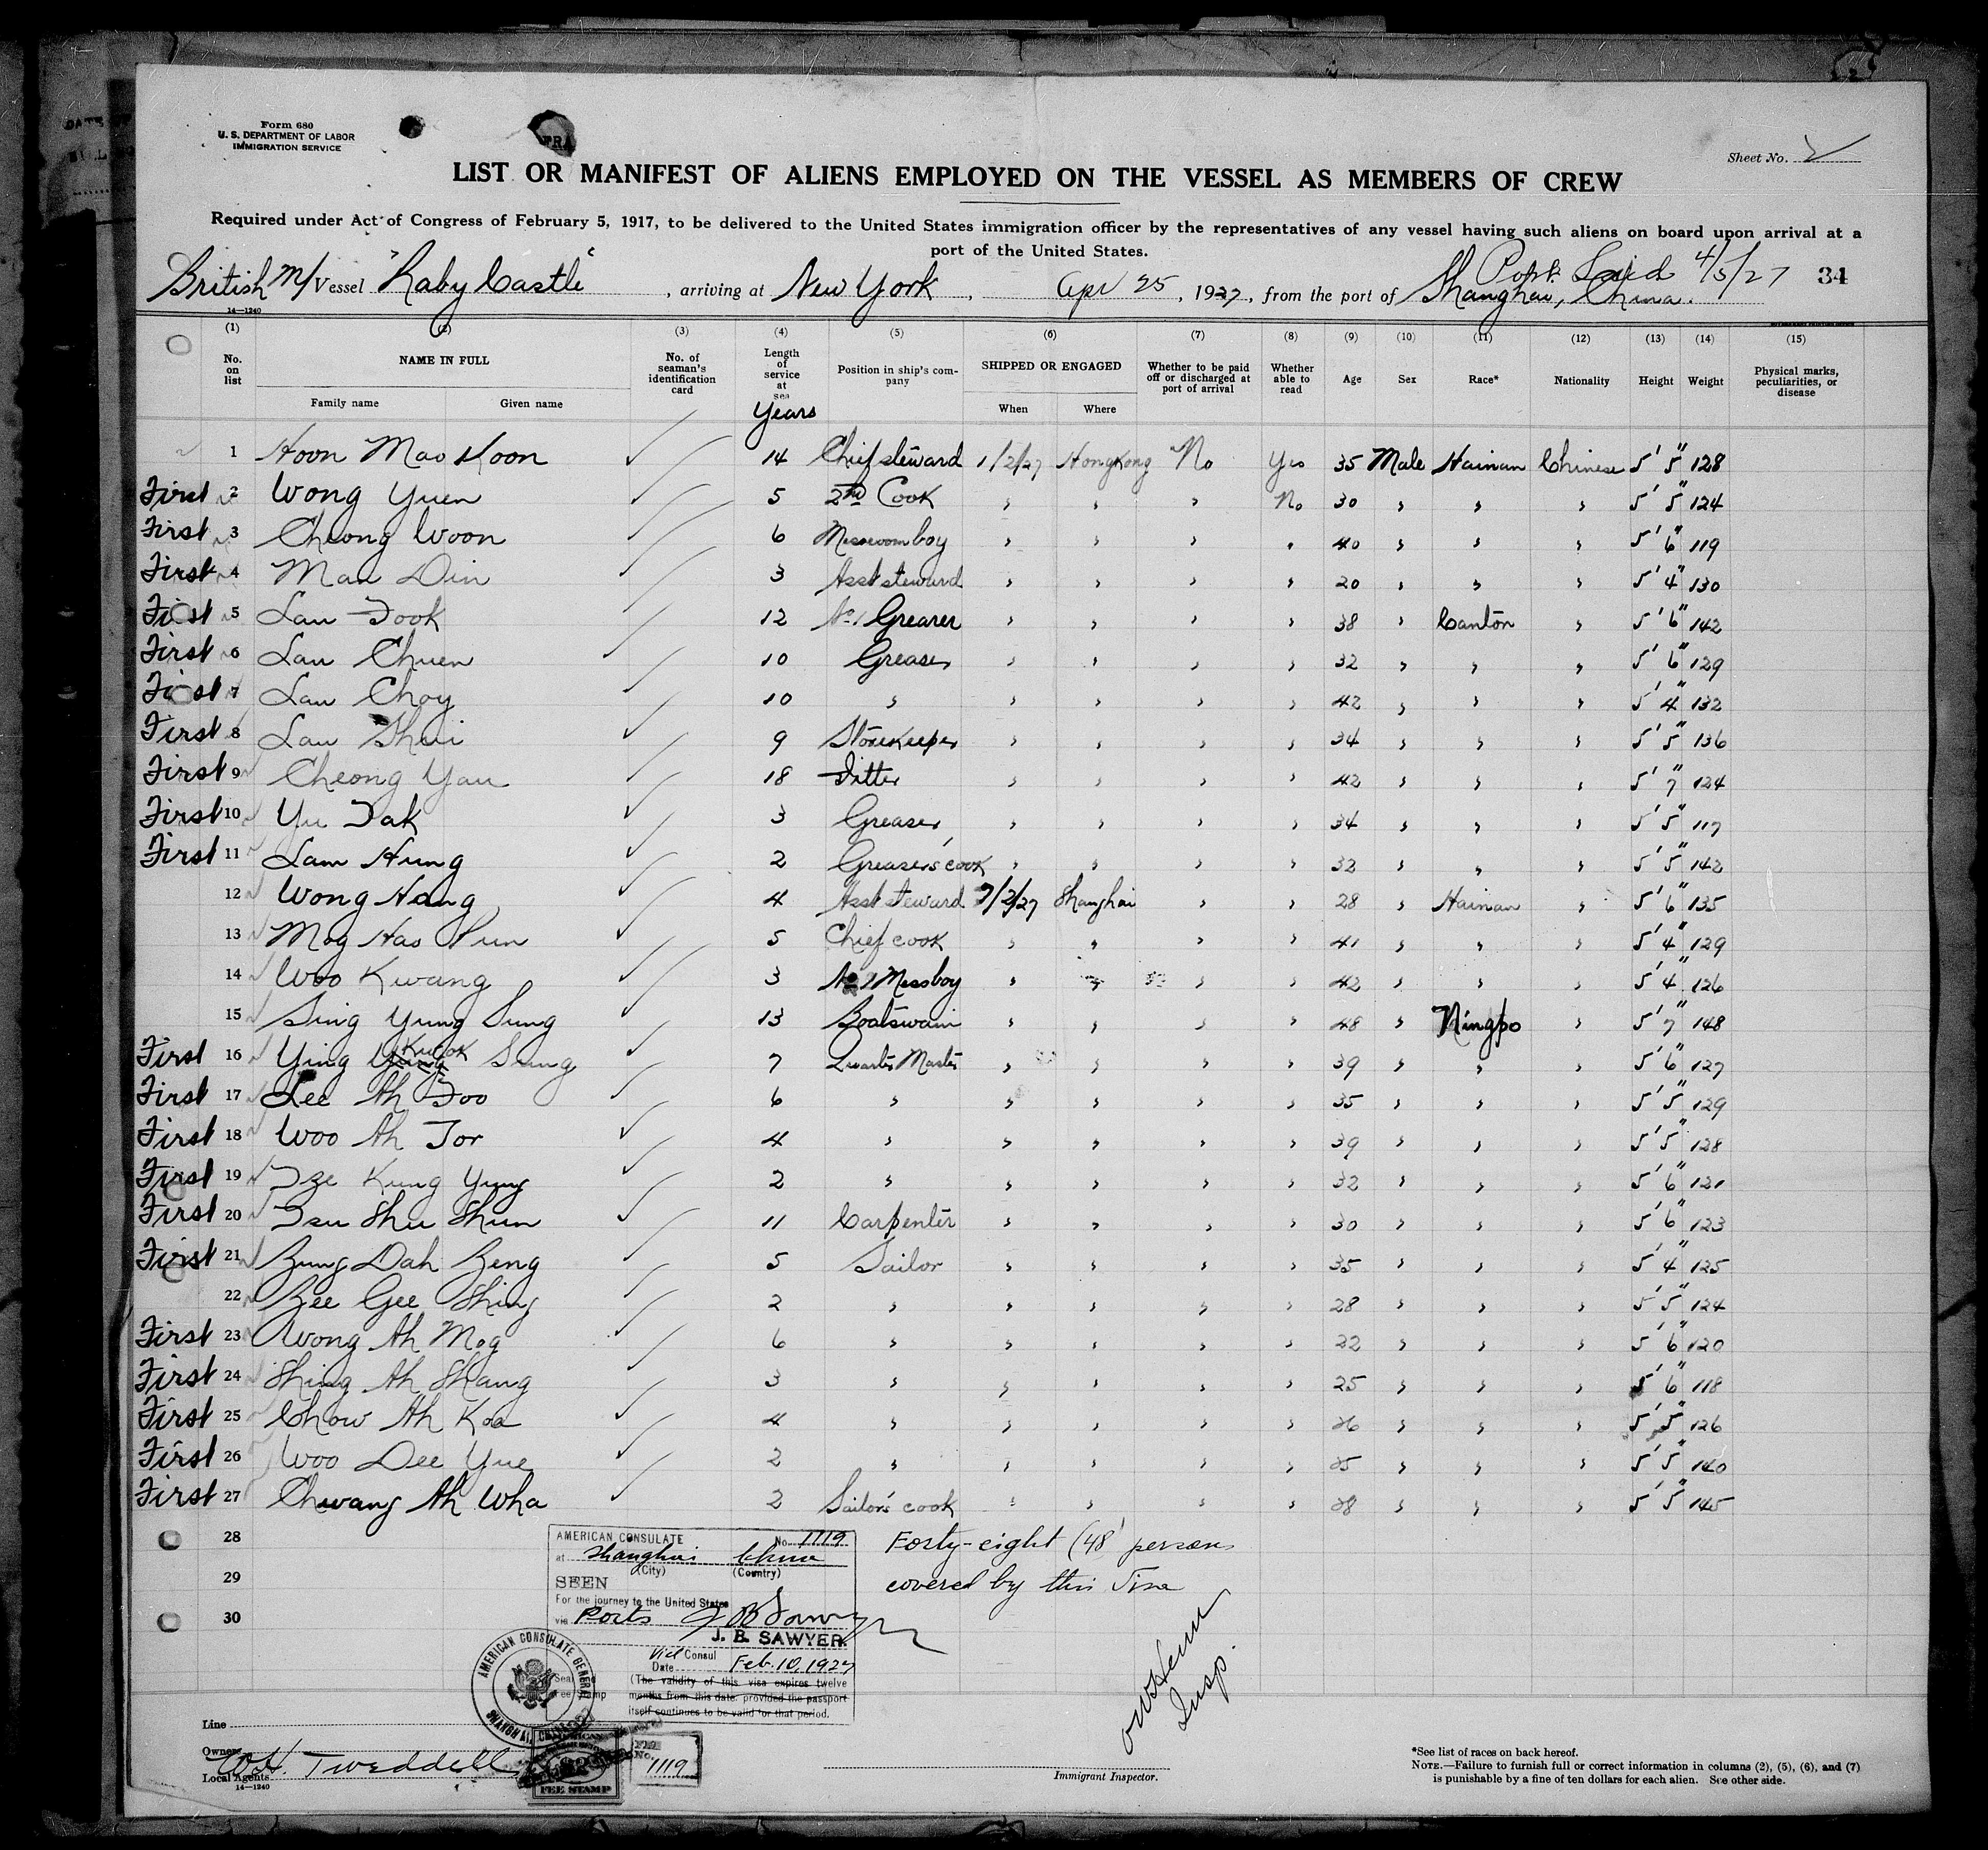 Form 680
U. S. DEPARTMENT OF LABOR
IMMIGRATION SERVICE
Sheet No. 2
LIST OR MANIFEST OF ALIENS EMPLOYED ON THE VESSEL AS MEMBERS OF CREW
Required under Act of Congress of February 5, 1917, to be delivered to the United States immigration officer by the representatives of any vessel having such aliens on board upon arrival at a
port of the United States.
Port Said 4/5/27
British M/Vessel "Raby Castle", arriving at New York, Apr 25, 1927, from the port of Shanghai, China. 34
14—1240
(1) (2) (3) (4) (5) (6) (7) (8) (9) (10) (11) (12) (13) (14) (15)
No. on list NAME IN FULL Family name Given name No. of seaman's identification card Length of service at sea Years Position in ship's company SHIPPED OR ENGAGED When Where Whether to be paid off or discharged at port of arrival Whether able to read Age Sex Race* Nationality Height Weight Physical marks, peculiarities, or disease
1 Hoon Mao Koon 14 Chief steward 1/2/27 Hongkong No Yes 35 Male Hainan Chinese 5' 5" 128
First 2 Wong Yuen 5 2nd Cook " " " No 30 " " " 5' 5" 124
First 3 Cheong Woon 6 Messroom boy " " " " 40 " " " 5' 6" 119
First 4 Man Din 3 Asst steward " " " " 20 " " " 5' 4" 130
First 5 Lau Fook 12 No. 1 Greaser " " " " 38 " Canton " 5' 6" 142
First 6 Lau Chuen 10 Greaser " " " " 32 " " " 5' 6" 129
First 7 Lau Choy 10 " " " " " 42 " " " 5' 4" 132
First 8 Lau Shui 9 Storekeeper " " " " 34 " " " 5' 5" 136
First 9 Cheong Yau 18 Fitter " " " " 42 " " " 5' 7" 124
First 10 Yu Tak 3 Greaser " " " " 34 " " " 5' 5" 117
First 11 Lam Hung 2 Greasers' cook " " " " 32 " " " 5' 5" 142
12 Wong Hang 4 Asst steward 7/2/27 Shanghai " " 28 " Hainan " 5' 6" 135
13 Mog Hao Pun 5 Chief cook " " " " 41 " " " 5' 4" 129
14 Woo Kwang 3 Messboy " " " " 42 " " " 5' 4" 126
15 Sing Yung Sung 13 Boatswain " " " " 48 " Ningpo " 5' 7" 148
First 16 Ying Kwok Sung 7 Quarter Master " " " " 39 " " " 5' 6" 127
First 17 Lee Ah Foo 6 " " " " " 35 " " " 5' 5" 129
First 18 Woo Ah Tor 4 " " " " " 39 " " " 5' 5" 128
First 19 Tze Kung Yung 2 " " " " " 32 " " " 5' 6" 121
First 20 Tsu Shu Shun 11 Carpenter " " " " 30 " " " 5' 6" 123
First 21 Zung Dah Zeng 5 Sailor " " " " 35 " " " 5' 4" 125
22 Zee Gee Shing 2 " " " " " 28 " " " 5' 5" 124
First 23 Wong Ah Mog 6 " " " " " 22 " " " 5' 6" 120
First 24 Shing Ah Shang 3 " " " " " 25 " " " 5' 6" 118
First 25 Chow Ah Koa 4 " " " " " 26 " " " 5' 5" 126
First 26 Woo Dee Yue 2 " " " " " 25 " " " 5' 5" 140
First 27 Chwang Ah Wha 2 Sailors' cook " " " " 28 " " " 5' 5" 145
28
29
30
AMERICAN CONSULATE No. 1119
at Shanghai China
(City) (Country)
SEEN
For the journey to the United States
via Ports J B Sawyer
J. B. SAWYER
Vice Consul
Date Feb. 10, 1927
(The validity of this visa expires twelve
months from this date provided the passport
itself continues to be valid for that period.
Seal
Fee Stamp
AMERICAN CONSULATE GENERAL
SHANGHAI, CHINA
Forty-eight (48) persons
covered by this Visa
Insp
Line
Owners
W. H. Tweddell
Local Agents
14—1240
FEE STAMP
FEE No. 1119
Immigrant Inspector.
*See list of races on back hereof.
NOTE.—Failure to furnish full or correct information in columns (2), (5), (6), and (7)
is punishable by a fine of ten dollars for each alien. See other side.